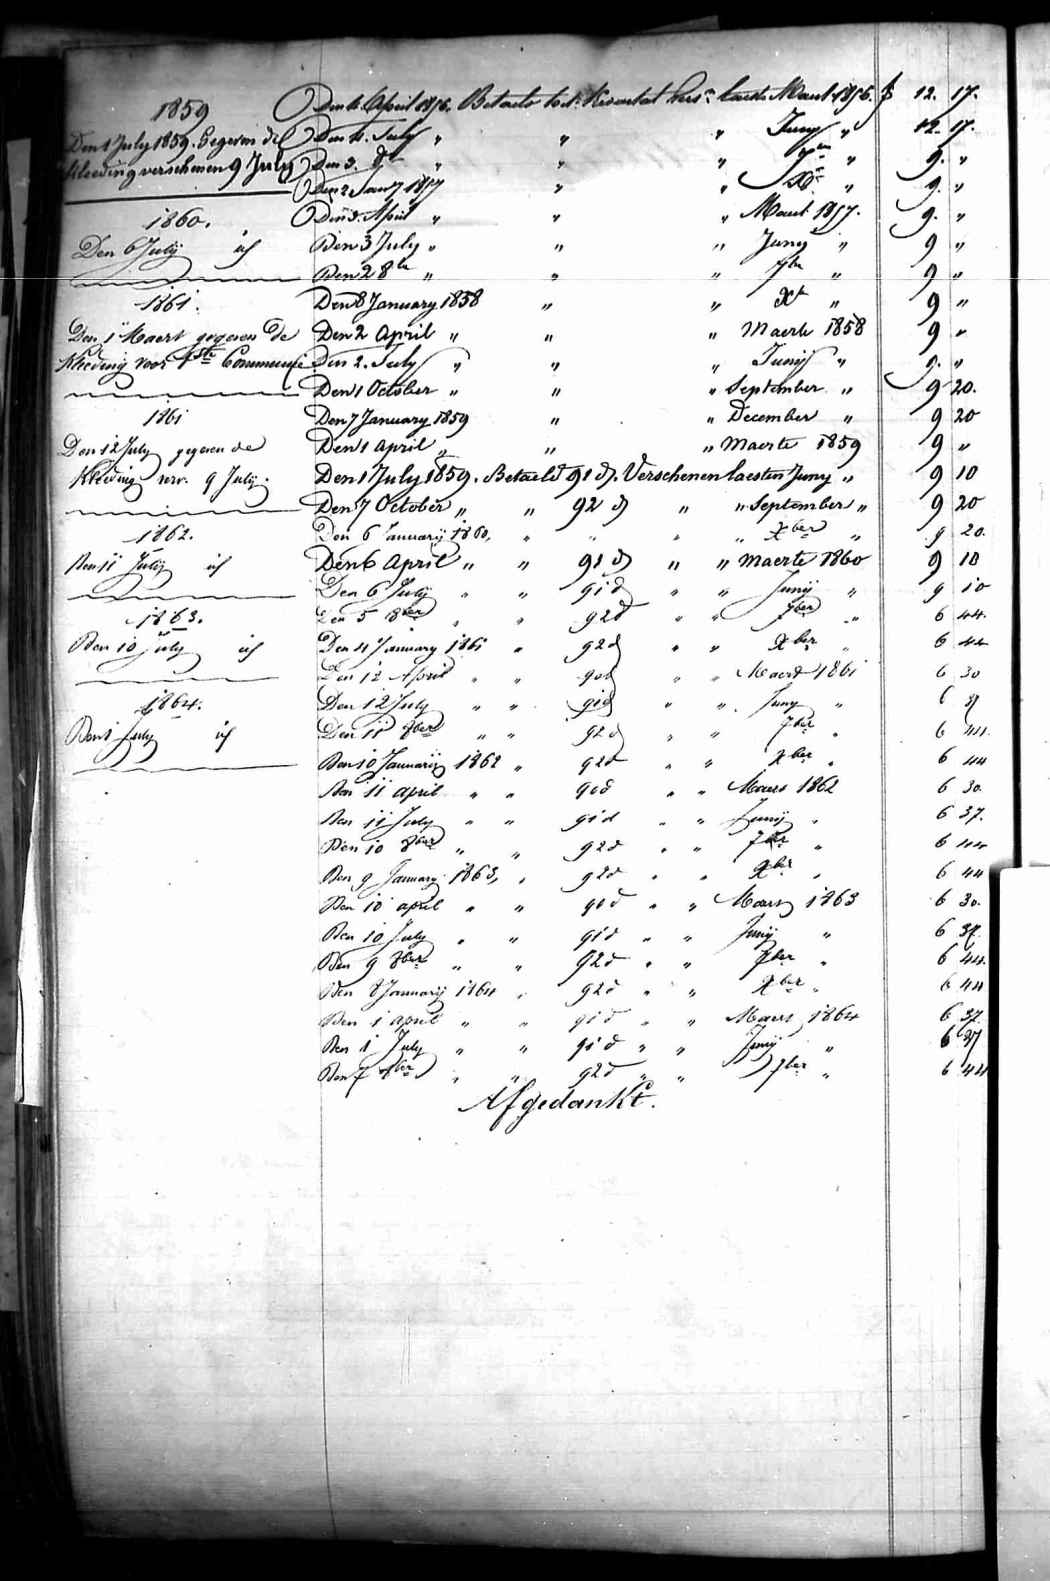 1859
Den 1 July 1859. Gegeven de
Kleeding verschenen 9 July
1860.
Den 6 Julij id
1861.
Den 1 Maert gegeven de
Kleeding voor 1ste Communie
1861
Den 12 July gegeven de
Kleeding verv. 9 Julij.
1862.
Den 11 Julij id
1863.
Den 10 July id
1864.
Den 1 July id
Den 4 April 1856. Betaelt tot Kwartal vers. laeste Maert 1856. f 12. 17.
Den 4. July " " " Juny " 12. 17.
Den 3. 8br " " " 7ber " 9. "
Den 2 Jany 1857 " " Xr " 9. "
Den 3. April " " " Maert 1857. 9. "
Den 3 July " " " Juny " 9 "
Den 2 8br " " " 7br " 9 "
Den 8 January 1858 " " Xr " 9 "
Den 2 April " " " Maerte 1858 9 "
Den 2. July " " " Junij " 9. "
Den 1 October " " " September " 9 20.
Den 7 January 1859 " " December " 9 20
Den 1 April " " " Maerte 1859 9 "
Den 1 July 1859. Betaeld 91 d. Verschenen laesten Juny " 9 10
Den 7 October " " 92 d " " September " 9 20
Den 6 Januarij 1860, " " " " Xber " 9 20.
Den 6 April " " 91 d " " Maerte 1860 9 10
Den 6 Julij " " 91 d " " Junij " 9 10
Den 5 8ber " " 92 d " " 7ber " 6 44.
Den 4 January 1861 " 92 d " " Xber " 6 44
Den 12 April " " 90 d " " Maert 1861 6 30
Den 12 July " " 91 d " " Juny " 6 37
Den 11 8ber " " 92 d " " 7ber " 6 44.
Den 10 Januarij 1862 " 92 d " " Xber " 6 44
Den 11 april " " 90 d " " Maers 1862 6 30.
Den 11 July " " 91 d " " Junij " 6 37.
Den 10 8ber " " 92 d " " 7ber " 6 44
Den 9 January 1863, " 92 d " " Xber " 6 44
Den 10 april " " 90 d " " Maers 1863 6 30.
Den 10 July " " 91 d " " Junij " 6 37.
Den 9 8ber " " 92 d " " 7ber " 6 44.
Den 8 Januarij 1864 " 92 d " " Xber " 6 44
Den 1 april " " 91 d " " Maers 1864 6 37.
Den 1 July " " 91 d " " Junij " 6 37
Den 7 8ber " " 92 d " " 7ber " 6 44
Afgedankt.